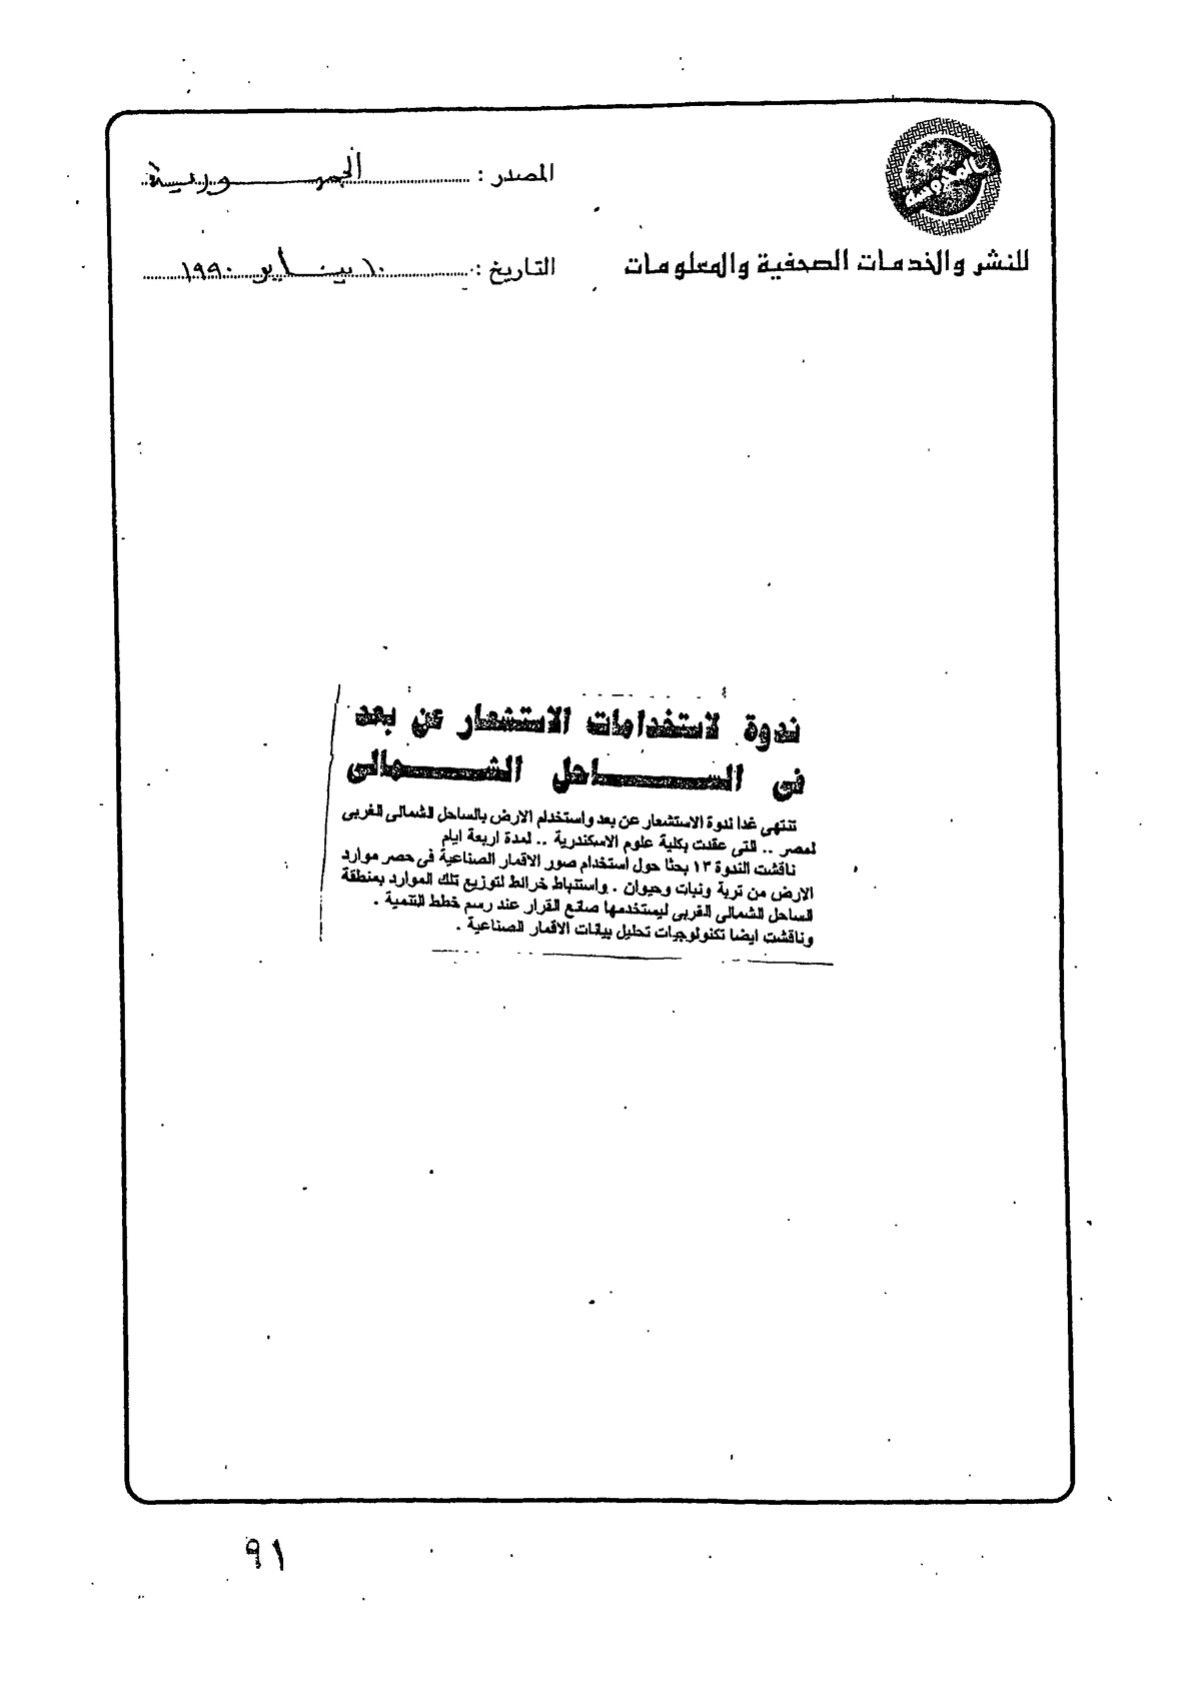 المصدر : الجمهورية
للنشر والخدمات الصحفية والمعلومات
التاريخ : ١٠ يناير ١٩٩٠
ندوة لاستخدامات الاستشعار عن بعد
فى الساحل الشمالى
تنتهى غدا ندوة الاستشعار عن بعد واستخدام الارض بالساحل الشمالى الغربى
لمصر .. التى عقدت بكلية علوم الاسكندرية .. لمدة اربعة ايام
ناقشت الندوة ١٣ بحثا حول استخدام صور الاقمار الصناعية فى حصر موارد
الارض من تربة ونبات وحيوان . واستنباط خرائط لتوزيع تلك الموارد بمنطقة
الساحل الشمالى الغربى ليستخدمها صانع القرار عند رسم خطط التنمية .
وناقشت ايضا تكنولوجيات تحليل بيانات الاقمار الصناعية .
٩١